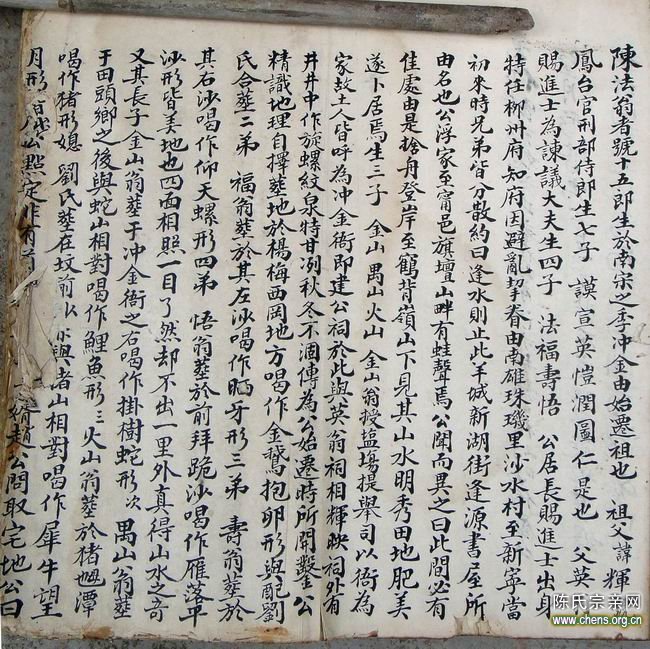 陳法翁者號十五郎生於南宋之季冲金由始遷祖也 祖父諱輝
鳳台官刑部侍郎生七子 謨宣英愷潤圖仁是也 父英
賜進士為諫議大夫生四子 法福壽悟 公居長賜進士出身
特任柳州府知府因避亂挈眷由南雄珠璣里沙水村至新寧當
初來時兄弟皆分散約曰逢水則止此羊城新湖街逢源書屋所
由名也公浮家至甯邑旗壇山畔有蛙聲焉公聞而異之曰此間必有
佳處由是捨舟登岸至鶴背嶺山下見其山水明秀田地肥美
遂卜居焉生三子 金山禺山火山 金山翁授塩場提舉司以衙為
家故土人皆呼為冲金衙即建公祠於此與英翁祠相輝映祠外有
井井中作旋螺紋泉特甘冽秋冬不涸傳為公始遷時所開鑿 公
精識地理自擇塟地於楊梅西岡地方唱作金鵞抱卵形與配劉
氏合塟二弟 福翁塟於其左沙唱作晒牙形三弟 壽翁塟於
其右沙唱作仰天螺形四弟 悟翁塟於前拜跪沙唱作雁落平
沙形皆美地也四面相照一目了然却不出一里外真得山水之奇
又其長子金山翁塟于冲金衙之右唱作掛樹蛇形次 禺山翁塟
于田頭鄉之後與蛇山相對唱作鯉魚形三火山翁塟於猪乸潭
唱作猪形媳 劉氏塟在坟前 與渚山相對唱作犀牛望
月形 公點定作有 趙公問取宅地公曰
陈氏宗亲网
www.chens.org.cn